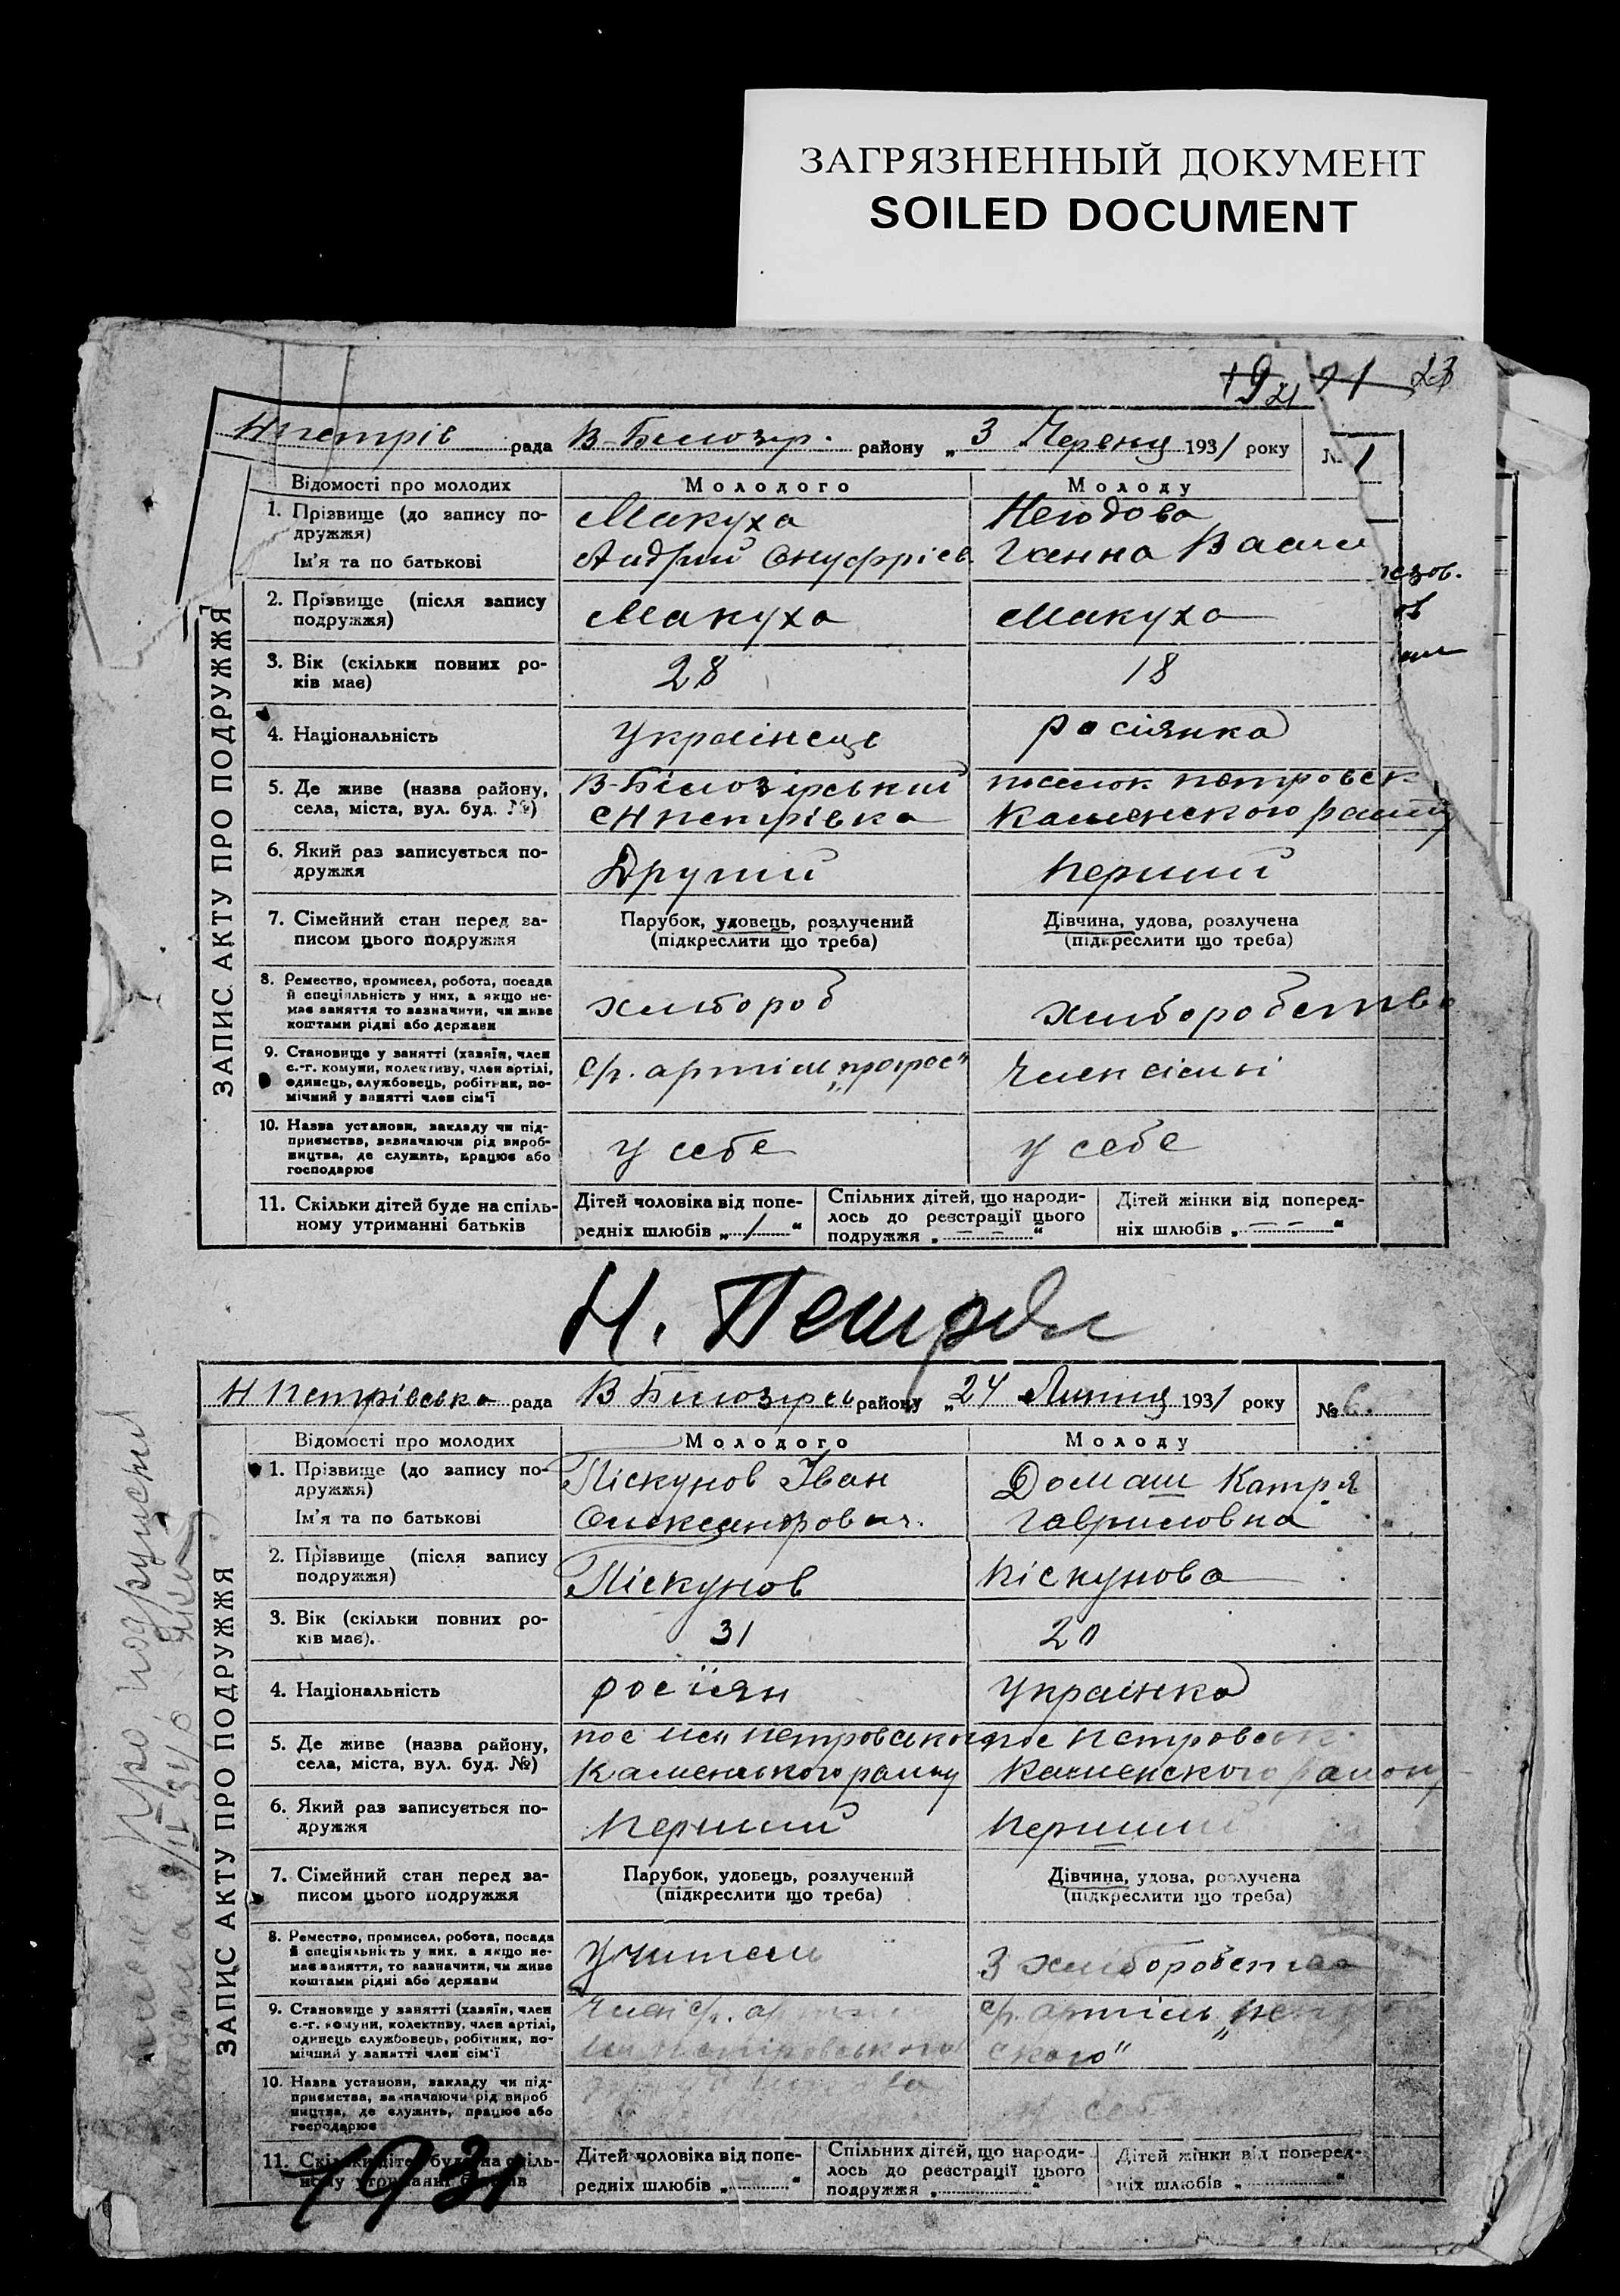 ЗАГРЯЗНЕННЫЙ ДОКУМЕНТ
SOILED DOCUMENT
23
Нпетрів рада В-Білозір. району „3 Червня 1931 року № 1
Відомості про молодих Молодого Молоду
ЗАПИС АКТУ ПРО ПОДРУЖЖЯ
1. Прізвище (до запису по- Макуха
дружжя)
Ім'я та по батькові Андрій Онуфріев. Ганна Васил
2. Прізвище (після запису Макуха Макуха
подружжя)
3. Вік (скільки повних ро- 28 18
ків має)
4. Національність Украінець росіянка
5. Де живе (назва району, В-Білозірський поселок петровск
села, міста, вул. буд. №) с Н петрівка Каменского району
6. Який раз записується по- Другий перший
дружжя
7. Сімейний стан перед за- Парубок, удовець, розлучений Дівчина, удова, розлучена
писом цього подружжя (підкреслити що треба) (підкреслити що треба)
8. Ремество, промисел, робота, посада
й спеціяльність у них, а якщо не- хлібороб хліборобство
має заняття то зазначити, чи живе
коштами рідні або держави
9. Становище у занятті (хазяїн, член
с.-г. комуни, колективу, член артілі, ср. артіли „прогрес" член сімі
одинець, службовець, робітник, по-
мічний у занятті член сім'ї
10. Назва установи, закладу чи під-
приємства, зазначаючи рід вироб- у себе у себе
ництва, де служить, працює або
господарює
11. Скільки дітей буде на спіль- Дітей чоловіка від попе- Спільних дітей, що народи- Дітей жінки від поперед-
ному утриманні батьків редніх шлюбів „ 1 “ лось до реєстрації цього ніх шлюбів „ — — “
подружжя „ — — “
Н. Петрів
Н Петрівська рада В Білозірсь району „24 Липня 1931 року № 6.
Відомості про молодих Молодого Молоду
ЗАПИС АКТУ ПРО ПОДРУЖЖЯ
1. Прізвище (до запису по- Піскунов Іван Домаш Катря
дружжя)
Ім'я та по батькові Олександрович. Гавриловна
2. Прізвище (після запису Піскунов Піскунова
подружжя)
3. Вік (скільки повних ро- 31 20
ків має).
4. Національність росіян Украінка
5. Де живе (назва району, пос петровськ
села, міста, вул. буд. №) Каменського району Каменского району
6. Який раз записується по- перший перший
дружжя
7. Сімейний стан перед за- Парубок, удовець, розлучений Дівчина, удова, розлучена
писом цього подружжя (підкреслити що треба) (підкреслити що треба)
8. Ремество, промисел, робота, посада
й спеціяльність у них, а якщо не- Учитель З хліборобства
має заняття, то зазначити, чи живе
коштами рідні або держави
9. Становище у занятті (хазяїн, член
с.-г. комуни, колективу, член артілі, член ср. ср. артіль
одинець службовець, робітник, по-
мічний у занятті член сім'ї петровського ского"
10. Назва установи, закладу чи під-
приємства, зазначаючи рід вироб
ництва, де служить, працює або
господарює
11. Скільки дітей буде на спіль- Дітей чоловіка від попе- Спільних дітей, що народи- Дітей жінки від поперед-
ному утриманні батьків редніх шлюбів „ “ лось до реєстрації цього ніх шлюбів „ “
подружжя „ “
1931